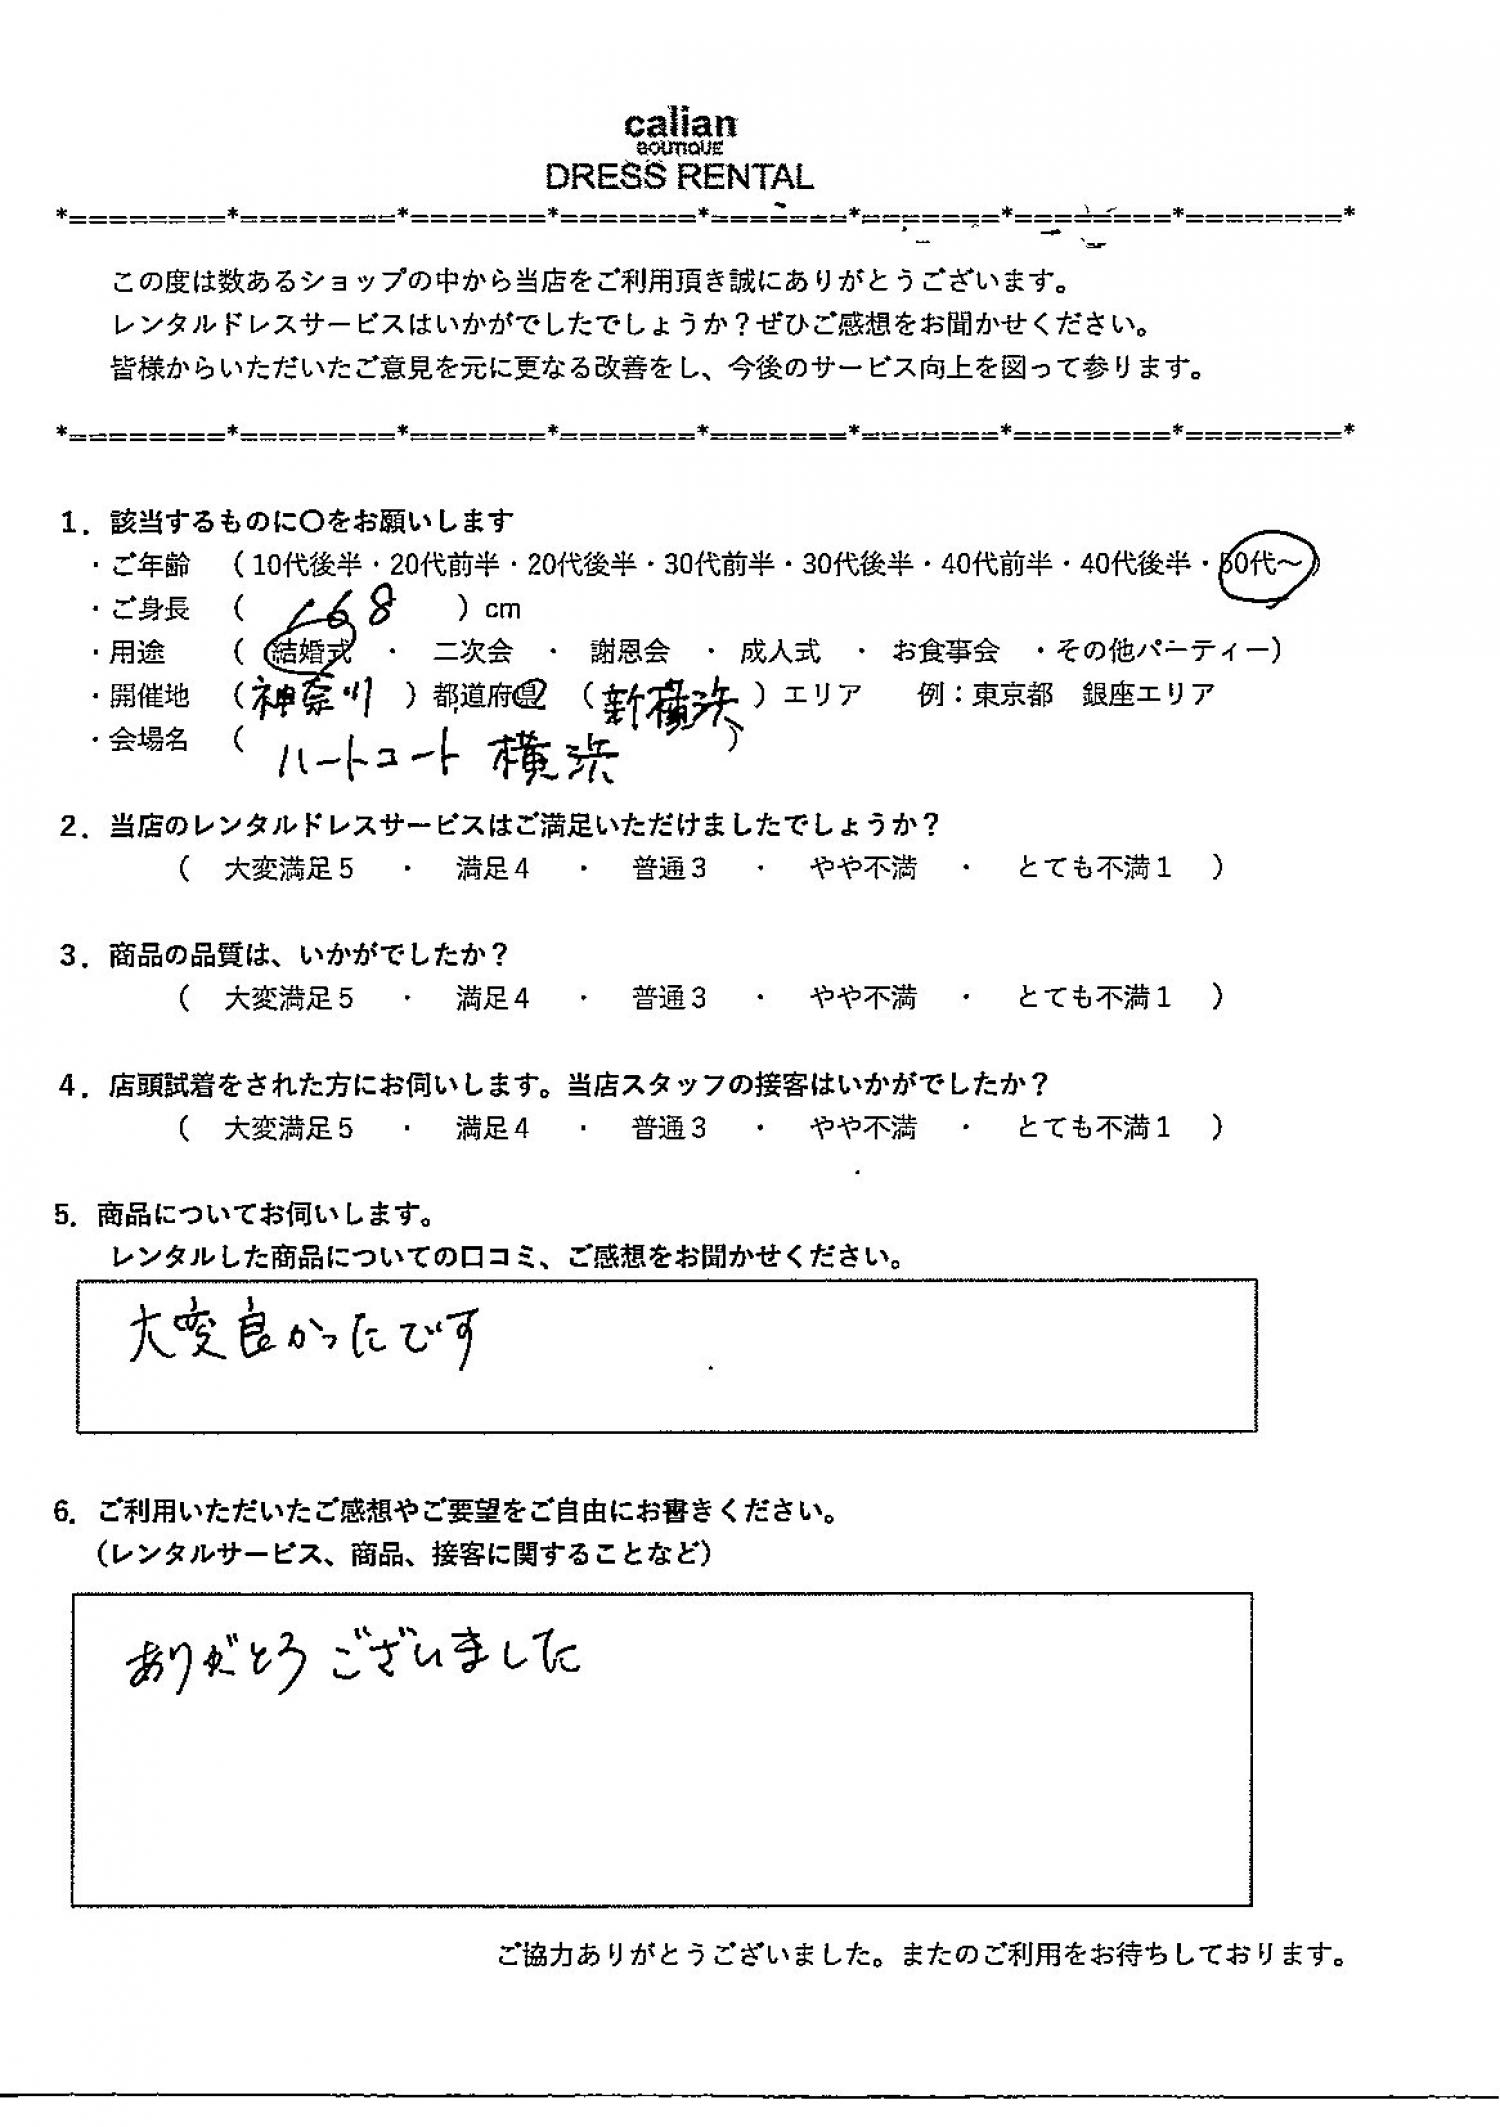 calian
BOUTIQUE
DRESS RENTAL
*========*========*=======*=======*=======*=======*========*========*
この度は数あるショップの中から当店をご利用頂き誠にありがとうございます。
レンタルドレスサービスはいかがでしたでしょうか？ぜひご感想をお聞かせください。
皆様からいただいたご意見を元に更なる改善をし、今後のサービス向上を図って参ります。
*========*========*=======*=======*=======*=======*========*========*
１．該当するものに〇をお願いします
・ご年齢 （10代後半・20代前半・20代後半・30代前半・30代後半・40代前半・40代後半・50代～）
・ご身長 （ 168 ）cm
・用途 （ 結婚式 ・ 二次会 ・ 謝恩会 ・ 成人式 ・ お食事会 ・その他パーティー）
・開催地 （神奈川）都道府県 （新横浜）エリア 例：東京都 銀座エリア
・会場名 （ハートコート 横浜）
２．当店のレンタルドレスサービスはご満足いただけましたでしょうか？
（ 大変満足５ ・ 満足４ ・ 普通３ ・ やや不満 ・ とても不満１ ）
３．商品の品質は、いかがでしたか？
（ 大変満足５ ・ 満足４ ・ 普通３ ・ やや不満 ・ とても不満１ ）
４．店頭試着をされた方にお伺いします。当店スタッフの接客はいかがでしたか？
（ 大変満足５ ・ 満足４ ・ 普通３ ・ やや不満 ・ とても不満１ ）
5. 商品についてお伺いします。
レンタルした商品についての口コミ、ご感想をお聞かせください。
大変良かったです
6. ご利用いただいたご感想やご要望をご自由にお書きください。
（レンタルサービス、商品、接客に関することなど）
ありがとうございました
ご協力ありがとうございました。またのご利用をお待ちしております。